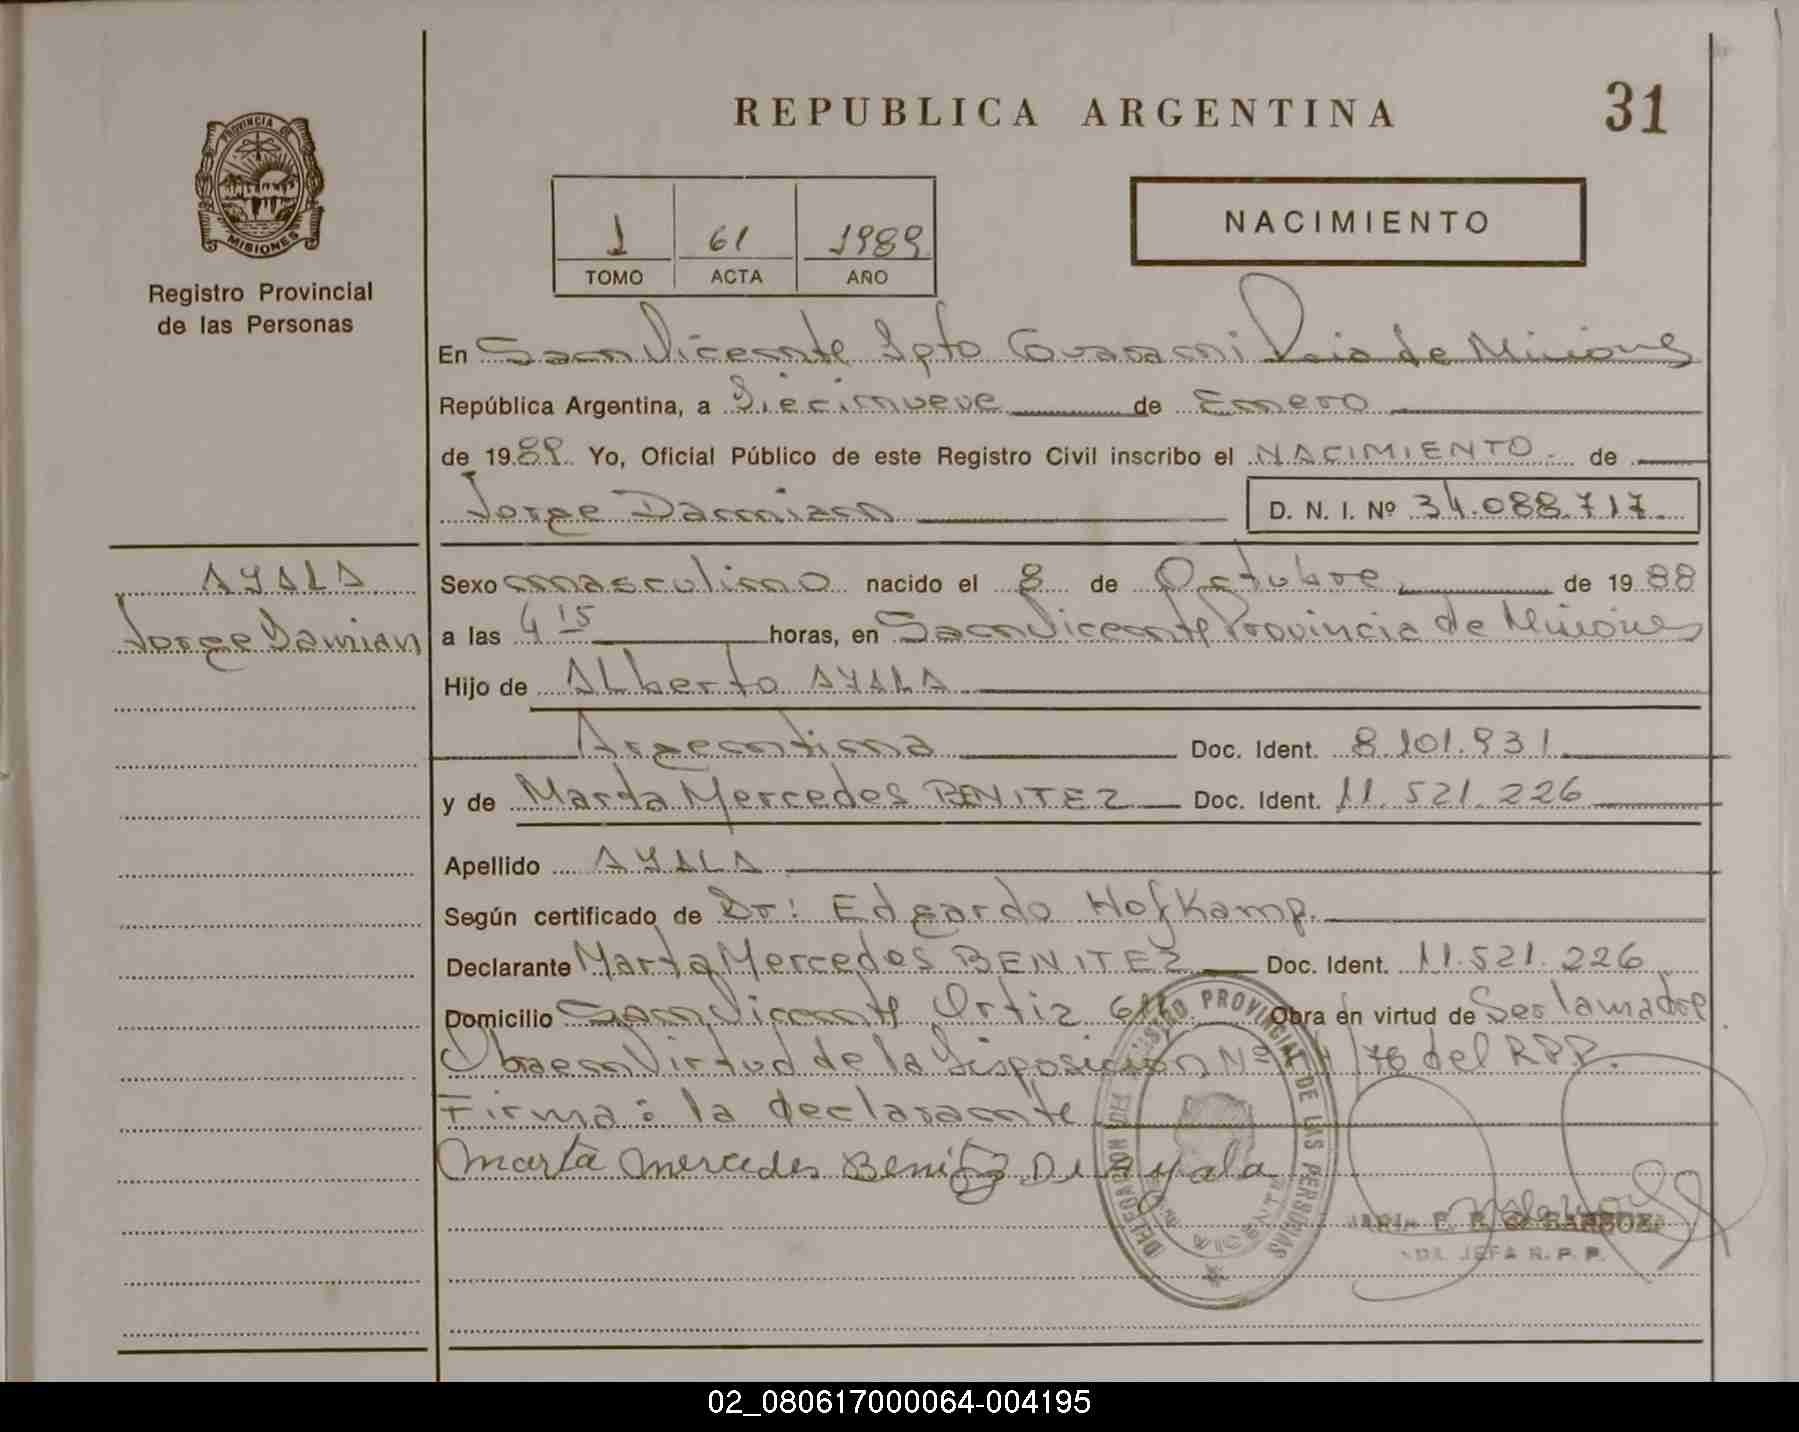 REPUBLICA ARGENTINA
31
PROVINCIA DE
MISIONES
Registro Provincial
de las Personas
1 61 1989
TOMO ACTA AÑO
NACIMIENTO
En San Vicente Dpto Guarani Pcia de Misiones
República Argentina, a Diecinueve de Enero
de 1989. Yo, Oficial Público de este Registro Civil inscribo el NACIMIENTO de
Jorge Damian
D. N. I. Nº 34.088.717
AYALA
Jorge Damian
Sexo masculino nacido el 8 de Octubre de 1988
a las 4 15 horas, en San Vicente Provincia de Misiones
Hijo de ALberto AYALA
Argentina Doc. Ident. 8.101.931
y de Marta Mercedes BENITEZ Doc. Ident. 11.521.226
Apellido AYALA
Según certificado de Dr: Edgardo Hofkamp.
Declarante Marta Mercedes BENITEZ Doc. Ident. 11.521.226
Domicilio San Vicente Ortiz Obra en virtud de Ser la madre
Obra en Virtud de la Disposicion Nº /76 del RPP.
Firma: la declarante
Marta Mercedes Benitez De Ayala
REGISTRO PROVINCIAL DE LAS PERSONAS
DELEGACION
BARBOZA
JEFA R. P. P.
02_080617000064-004195